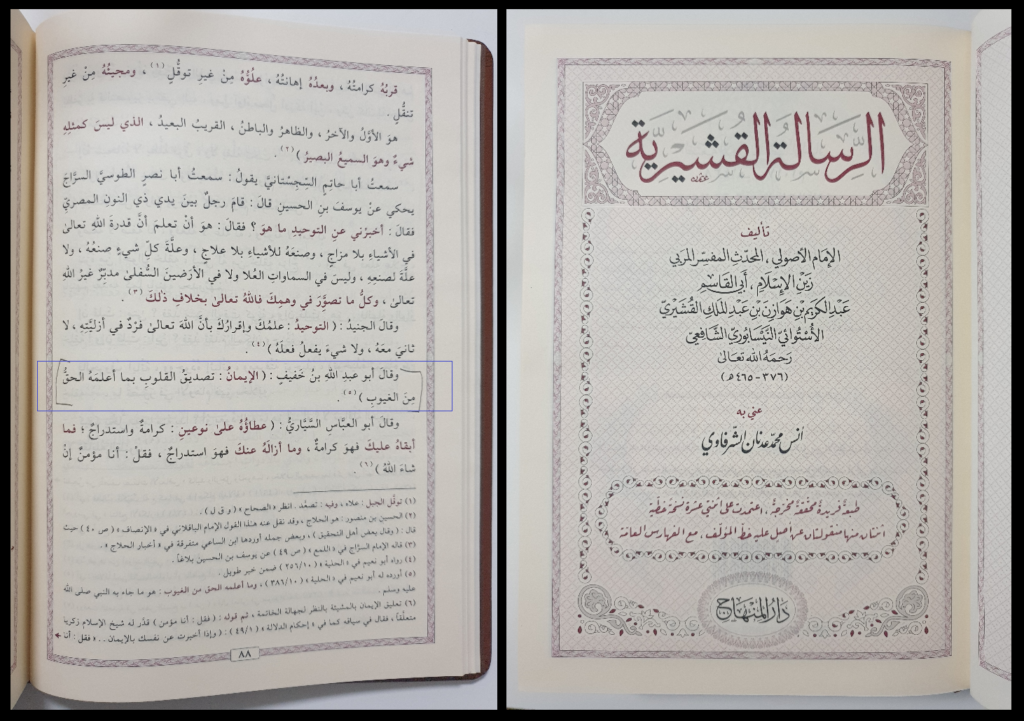 قربُهُ كرامتُهُ ، وبعدُهُ إهانتُهُ ، علُوُّهُ مِنْ غيرِ توقُّلٍ (١) ، ومجيئُهُ مِنْ غيرِ
تنقُّلٍ .
هوَ الأوَّلُ والآخرُ ، والظاهرُ والباطنُ ، القريبُ البعيدُ ، الذي ليسَ كمثلِهِ
شيءٌ وهوَ السميعُ البصيرُ ) (٢) .
سمعتُ أبا حاتمٍ السِّجِسْتانيَّ يقولُ : سمعتُ أبا نصرٍ الطوسيَّ السرَّاجَ
يحكي عنْ يوسفَ بنِ الحسينِ قالَ : قامَ رجلٌ بينَ يدي ذي النونِ المصريِّ
فقالَ : أخبرْني عنِ التوحيدِ ما هوَ ؟ فقالَ : هوَ أنْ تعلمَ أنَّ قدرةَ اللهِ تعالىٰ
في الأشياءِ بلا مزاجٍ ، وصنعَهُ للأشياءِ بلا علاجٍ ، وعلَّةَ كلِّ شيءٍ صنعُهُ ، ولا
علَّةَ لصنعِهِ ، وليسَ في السماواتِ العُلا ولا في الأرَضينَ السُّفلىٰ مدبِّرٌ غيرُ اللهِ
تعالىٰ ، وكلُّ ما تصوَّرَ في وهمِكَ فاللهُ تعالىٰ بخلافِ ذٰلكَ (٣) .
وقالَ الجنيدُ : ( التوحيدُ : علمُكَ وإقرارُكَ بأنَّ اللهَ تعالىٰ فَرْدٌ في أزليَّتِهِ ، لا
ثانيَ معَهُ ، ولا شيءَ يفعلُ فعلَهُ ) (٤) .
وقالَ أبو عبدِ اللهِ بنُ خَفيفٍ : ( الإيمانُ : تصديقُ القلوبِ بما أعلمَهُ الحقُّ
مِنَ الغيوبِ ) (٥) .
وقالَ أبو العبَّاسِ السَّيَّاريُّ : ( عطاؤُهُ علىٰ نوعينِ : كرامةٌ واستدراجٌ ؛ فما
أبقاهُ عليكَ فهوَ كرامةٌ ، وما أزالَهُ عنكَ فهوَ استدراجٌ ، فقلْ : أنا مؤمنٌ إنْ
شاءَ اللهُ ) (٦) .
(١) توقَّل الجبل : علاه ، وفيه : تصعَّد . انظر « الصحاح » ( و ق ل ) .
(٢) الحسين بن منصور : هو الحلاج ، وقد نقل عنه هذا القول الإمام الباقلاني في « الإنصاف » ( ص ٤٠ ) حيث
قال : ( وقال بعض أهل التحقيق ) ، وبعض جمله أوردها ابن الساعي متفرقة في « أخبار الحلاج » .
(٣) قاله الإمام السرَّاج في « اللمع » ( ص ٤٩ ) عن يوسف بن الحسين بلاغاً .
(٤) رواه أبو نعيم في « الحلية » ( ٢٥٦/١٠ ) ضمن خبر طويل .
(٥) أورده له أبو نعيم في « الحلية » ( ٣٨٦/١٠ ) ، وما أعلمه الحق من الغيوب : هو ما جاء به النبي صلى الله
عليه وسلم .
(٦) تعليق الإيمان بالمشيئة بالنظر لجهالة الخاتمة ، ثم قوله : ( فقل : أنا مؤمن ) قدَّر له شيخ الإسلام زكريا
متعلَّقاً ، فقال في سياقه كما في « إحكام الدلالة » ( ٤٩/١ ) : ( وإذا أخبرت عن نفسك بالإيمان .. « فقل : أنا
٨٨
الرسالة القشيرية
تأليف
الإمام الأصولي ، المحدث المفسر المربي
زين الإسلام ، أبي القاسم
عبد الكريم بن هوازن بن عبد الملك القشيري
الأُستوائي النيسابوري الشافعي
رحمه الله تعالى
(٣٧٦-٤٦٥هـ)
عني به
أنس محمد عدنان الشرفاوي
طبعة فريدة محققة مخرجة ، اعتمدت على اثنتي عشرة نسخة خطية
اثنتان منها منقولتان عن أصل عليه خط المؤلف ، مع الفهارس العامة
دار المنهاج